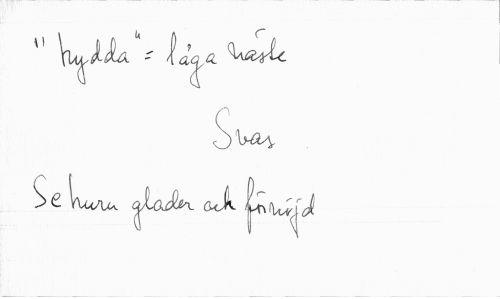 "hydda" = låga näste
Svar
Se huru glader och förnöjd